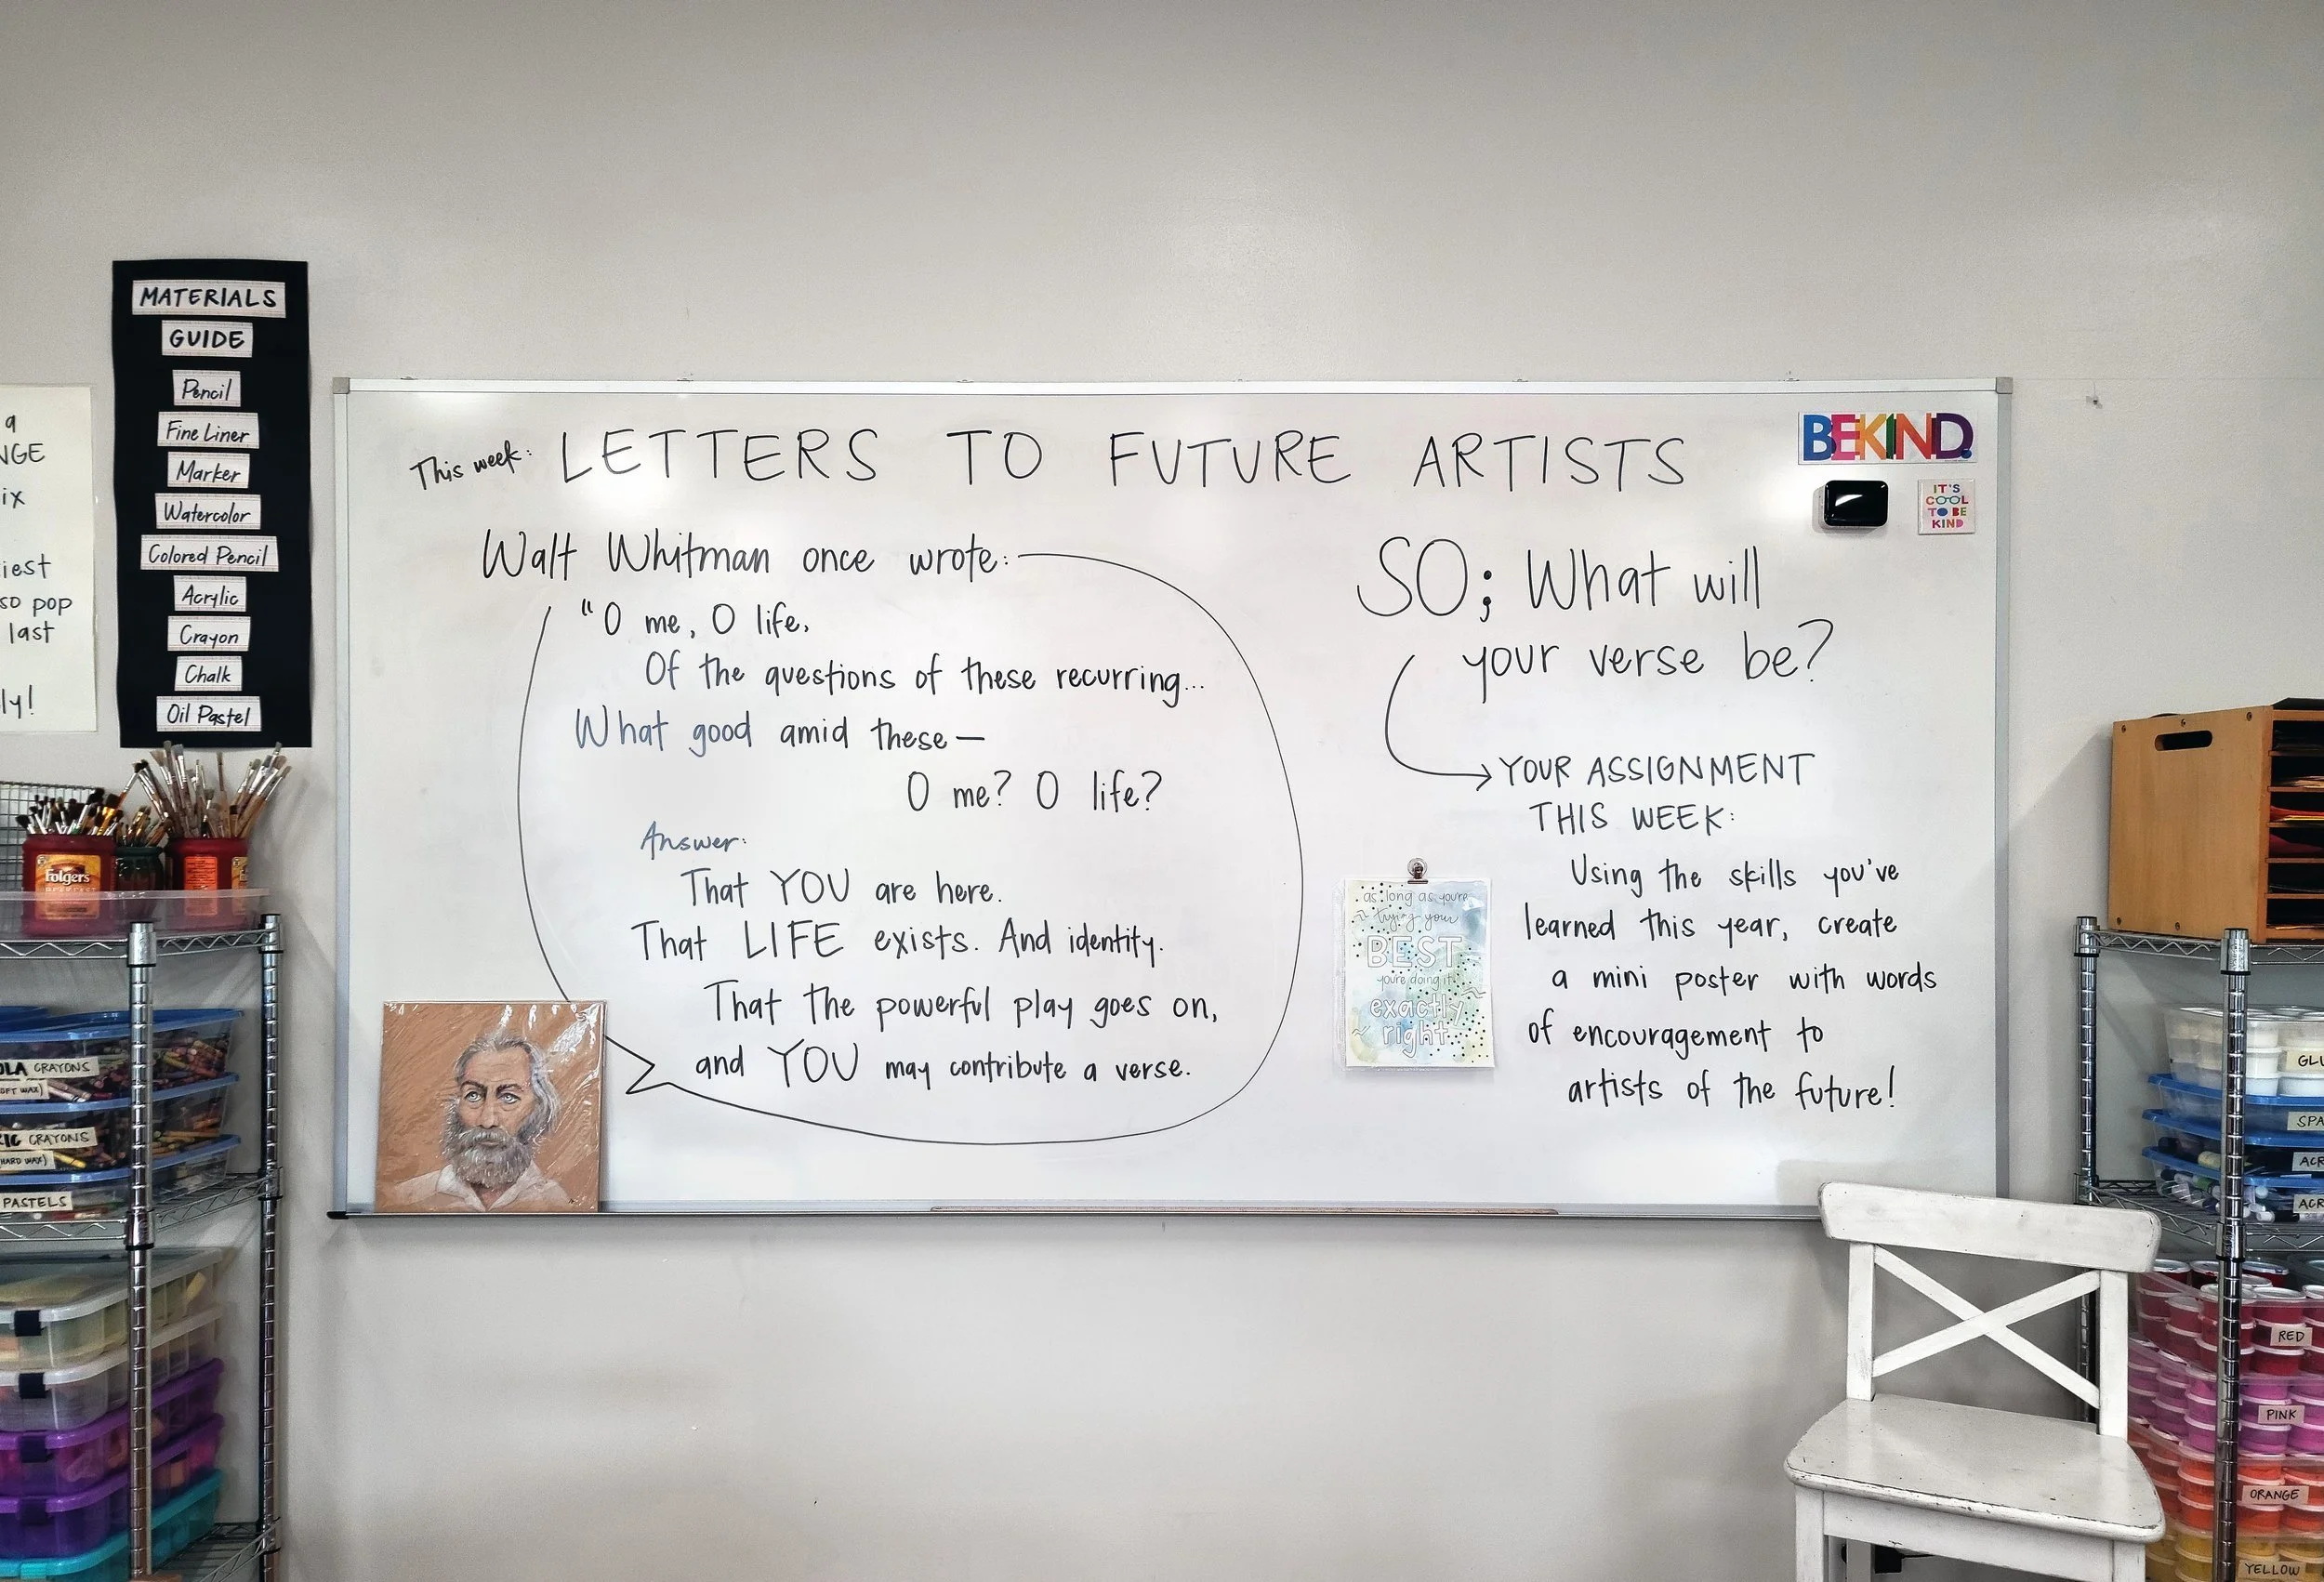 a
NGE
ix
iest
so pop
last
ly!
MATERIALS
GUIDE
Pencil
Fine Liner
Marker
Watercolor
Colored Pencil
Acrylic
Crayon
Chalk
Oil Pastel
Folgers
OLA CRAYONS
OFT WAX)
RIC CRAYONS
HARD WAX)
PASTELS
This week: LETTERS TO FUTURE ARTISTS
Walt Whitman once wrote:
"O me, O life,
Of the questions of these recurring...
What good amid these—
O me? O life?
Answer:
That YOU are here.
That LIFE exists. And identity.
That the powerful play goes on,
and YOU may contribute a verse.
SO; What will
your verse be?
YOUR ASSIGNMENT
THIS WEEK:
Using the skills you've
learned this year, create
a mini poster with words
of encouragement to
artists of the future!
as long as you're
trying your
BEST
you're doing it
exactly
right.
BE KIND.
IT'S
COOL
TO BE
KIND
GLU
SPA
ACR
ACR
RED
PINK
ORANGE
YELLOW